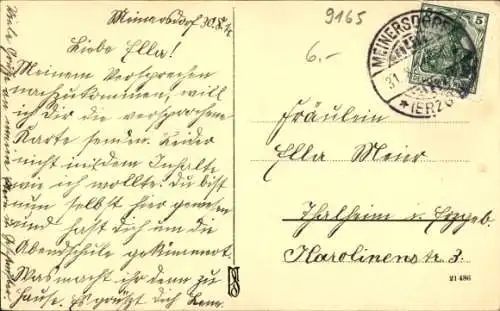 Meinersdorf 30.8.
Liebe Ella!
Meinem Versprechen
nachzukommen, will
ich Dir die versprochene
Karte senden. Leider
nicht mit dem Inhalte
wie ich wollte. Du bist
nun selbst hier gewesen
und hast dich um die
Abendschule gekümmert.
Was macht ihr denn zu
Hause. Es grüßt Dich
Viele Grüße an
9165
6.-
MEINERSDORF
31.
* (ERZG
5
Fräulein
Ella Meier
Thalheim i. Erzgeb.
Karolinenstr. 3.
21486